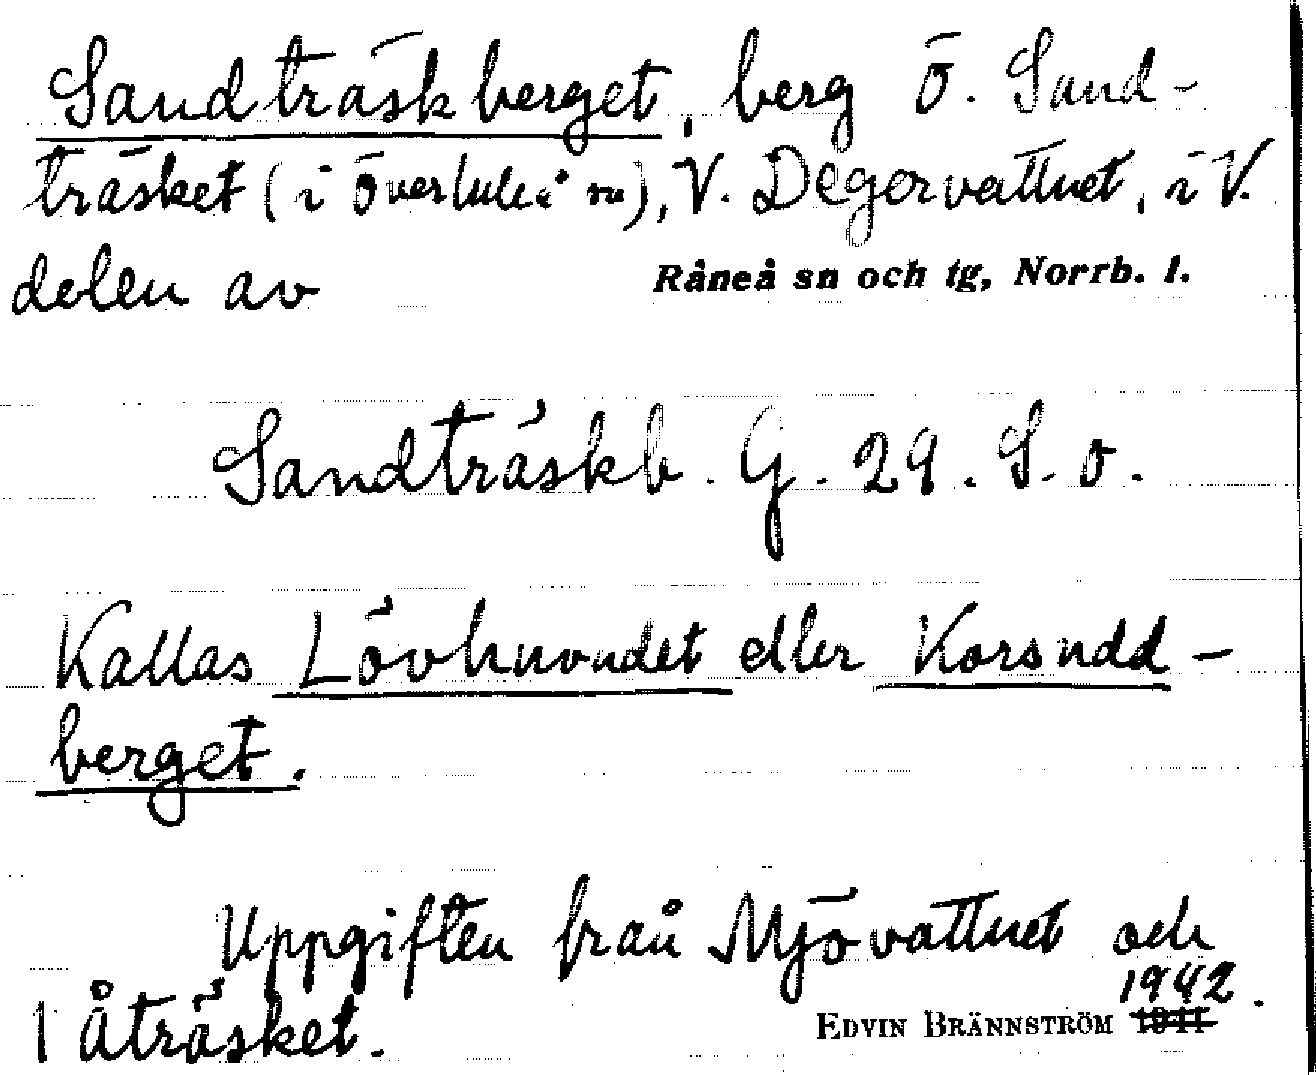 Sandträskberget, berg ö. Sand-
träsket (i Överluleå sn), V. Degervattnet, i V.
delen av Råneå sn och tg, Norrb. l.
Sandträskb. G. 29. S. o.
Kallas Lövhuvudet eller Korsudd-
berget.
Uppgiften från Mjövattnet och
Åträsket. EDVIN BRÄNNSTRÖM 1942.
1941